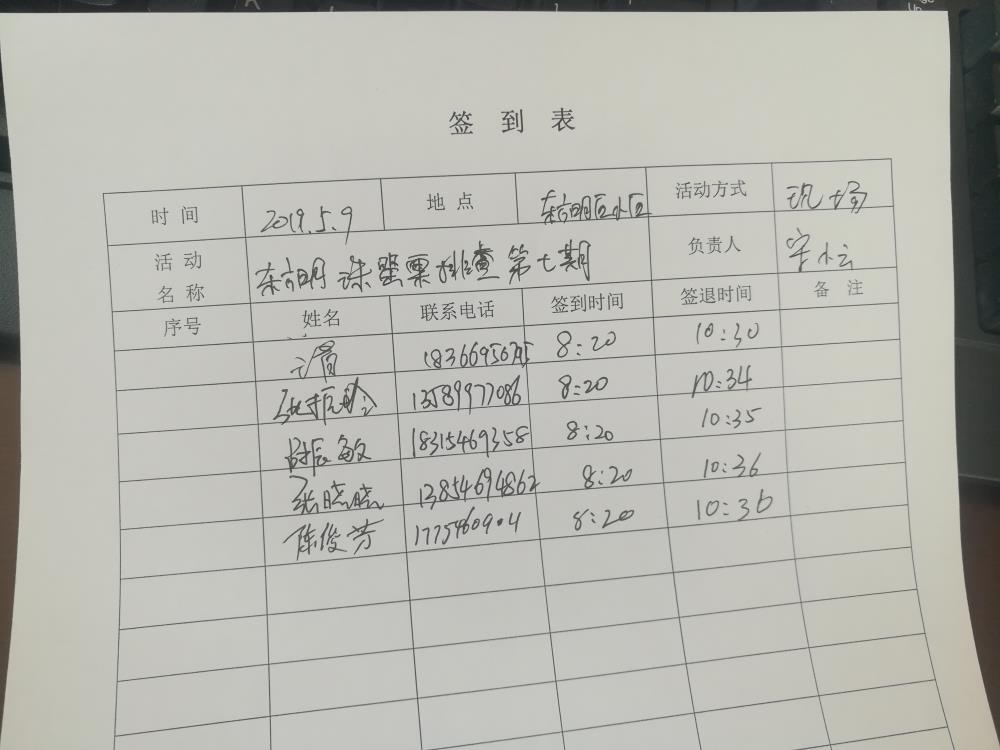 签到表
时间 2019.5.9 地点 东方明区小区 活动方式 现场
活动名称 东方明珠罂粟排查第七期 负责人 宋小云
序号 姓名 联系电话 签到时间 签退时间 备注
8:20 10:30
13589977086 8:20 10:34
18315469358 8:20 10:35
张晓晓 13854694862 8:20 10:36
陈俊芳 8:20 10:36